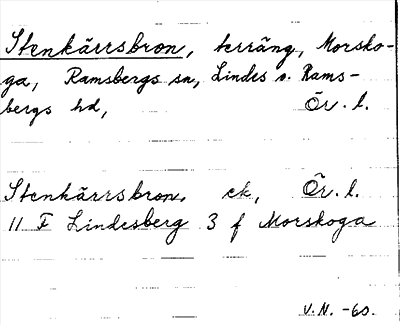 Stenkärrsbron, terräng, Morsko-
ga, Ramsbergs sn, Lindes o. Rams-
bergs hd, Ör. l.
Stenkärrsbron, ek, Ör. l.
11 F Lindesberg 3 f Morskoga
V.N. -60.